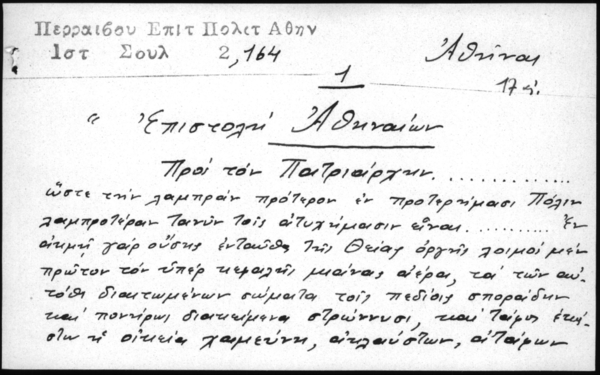 Περραιβου Επιτ Πολιτ Αθην
1στ Σουλ 2,164
Ἀθῆναι
1
17
" Ἐπιστολὴ Ἀθηναίων
Πρὸς τὸν Πατριάρχην. . . . . . . . . .
ὥστε τὴν λαμπρὰν πρότερον ἐν προτερήμασι Πόλιν
λαμπροτέραν τανῦν τοῖς ἀτυχήμασιν εἶναι. . . . . . . . . . Ἐν
ἀκμῇ γὰρ οὔσης ἐνταῦθα τῆς Θείας ὀργῆς λοιμὸς μὲν
πρῶτον τὸν ὑπὲρ κεφαλῆς μιάνας ἀέρα, τὰ τῶν αὐ-
τόθι διαιτωμένων σώματα τοῖς πεδίοις σποράδην
καὶ πονήρως διακείμενα στρώννυσι, καὶ τάφος ἑκά-
στῳ ἡ οἰκεία χαμεύνη, ἀκλαύστων, ἀτάφων